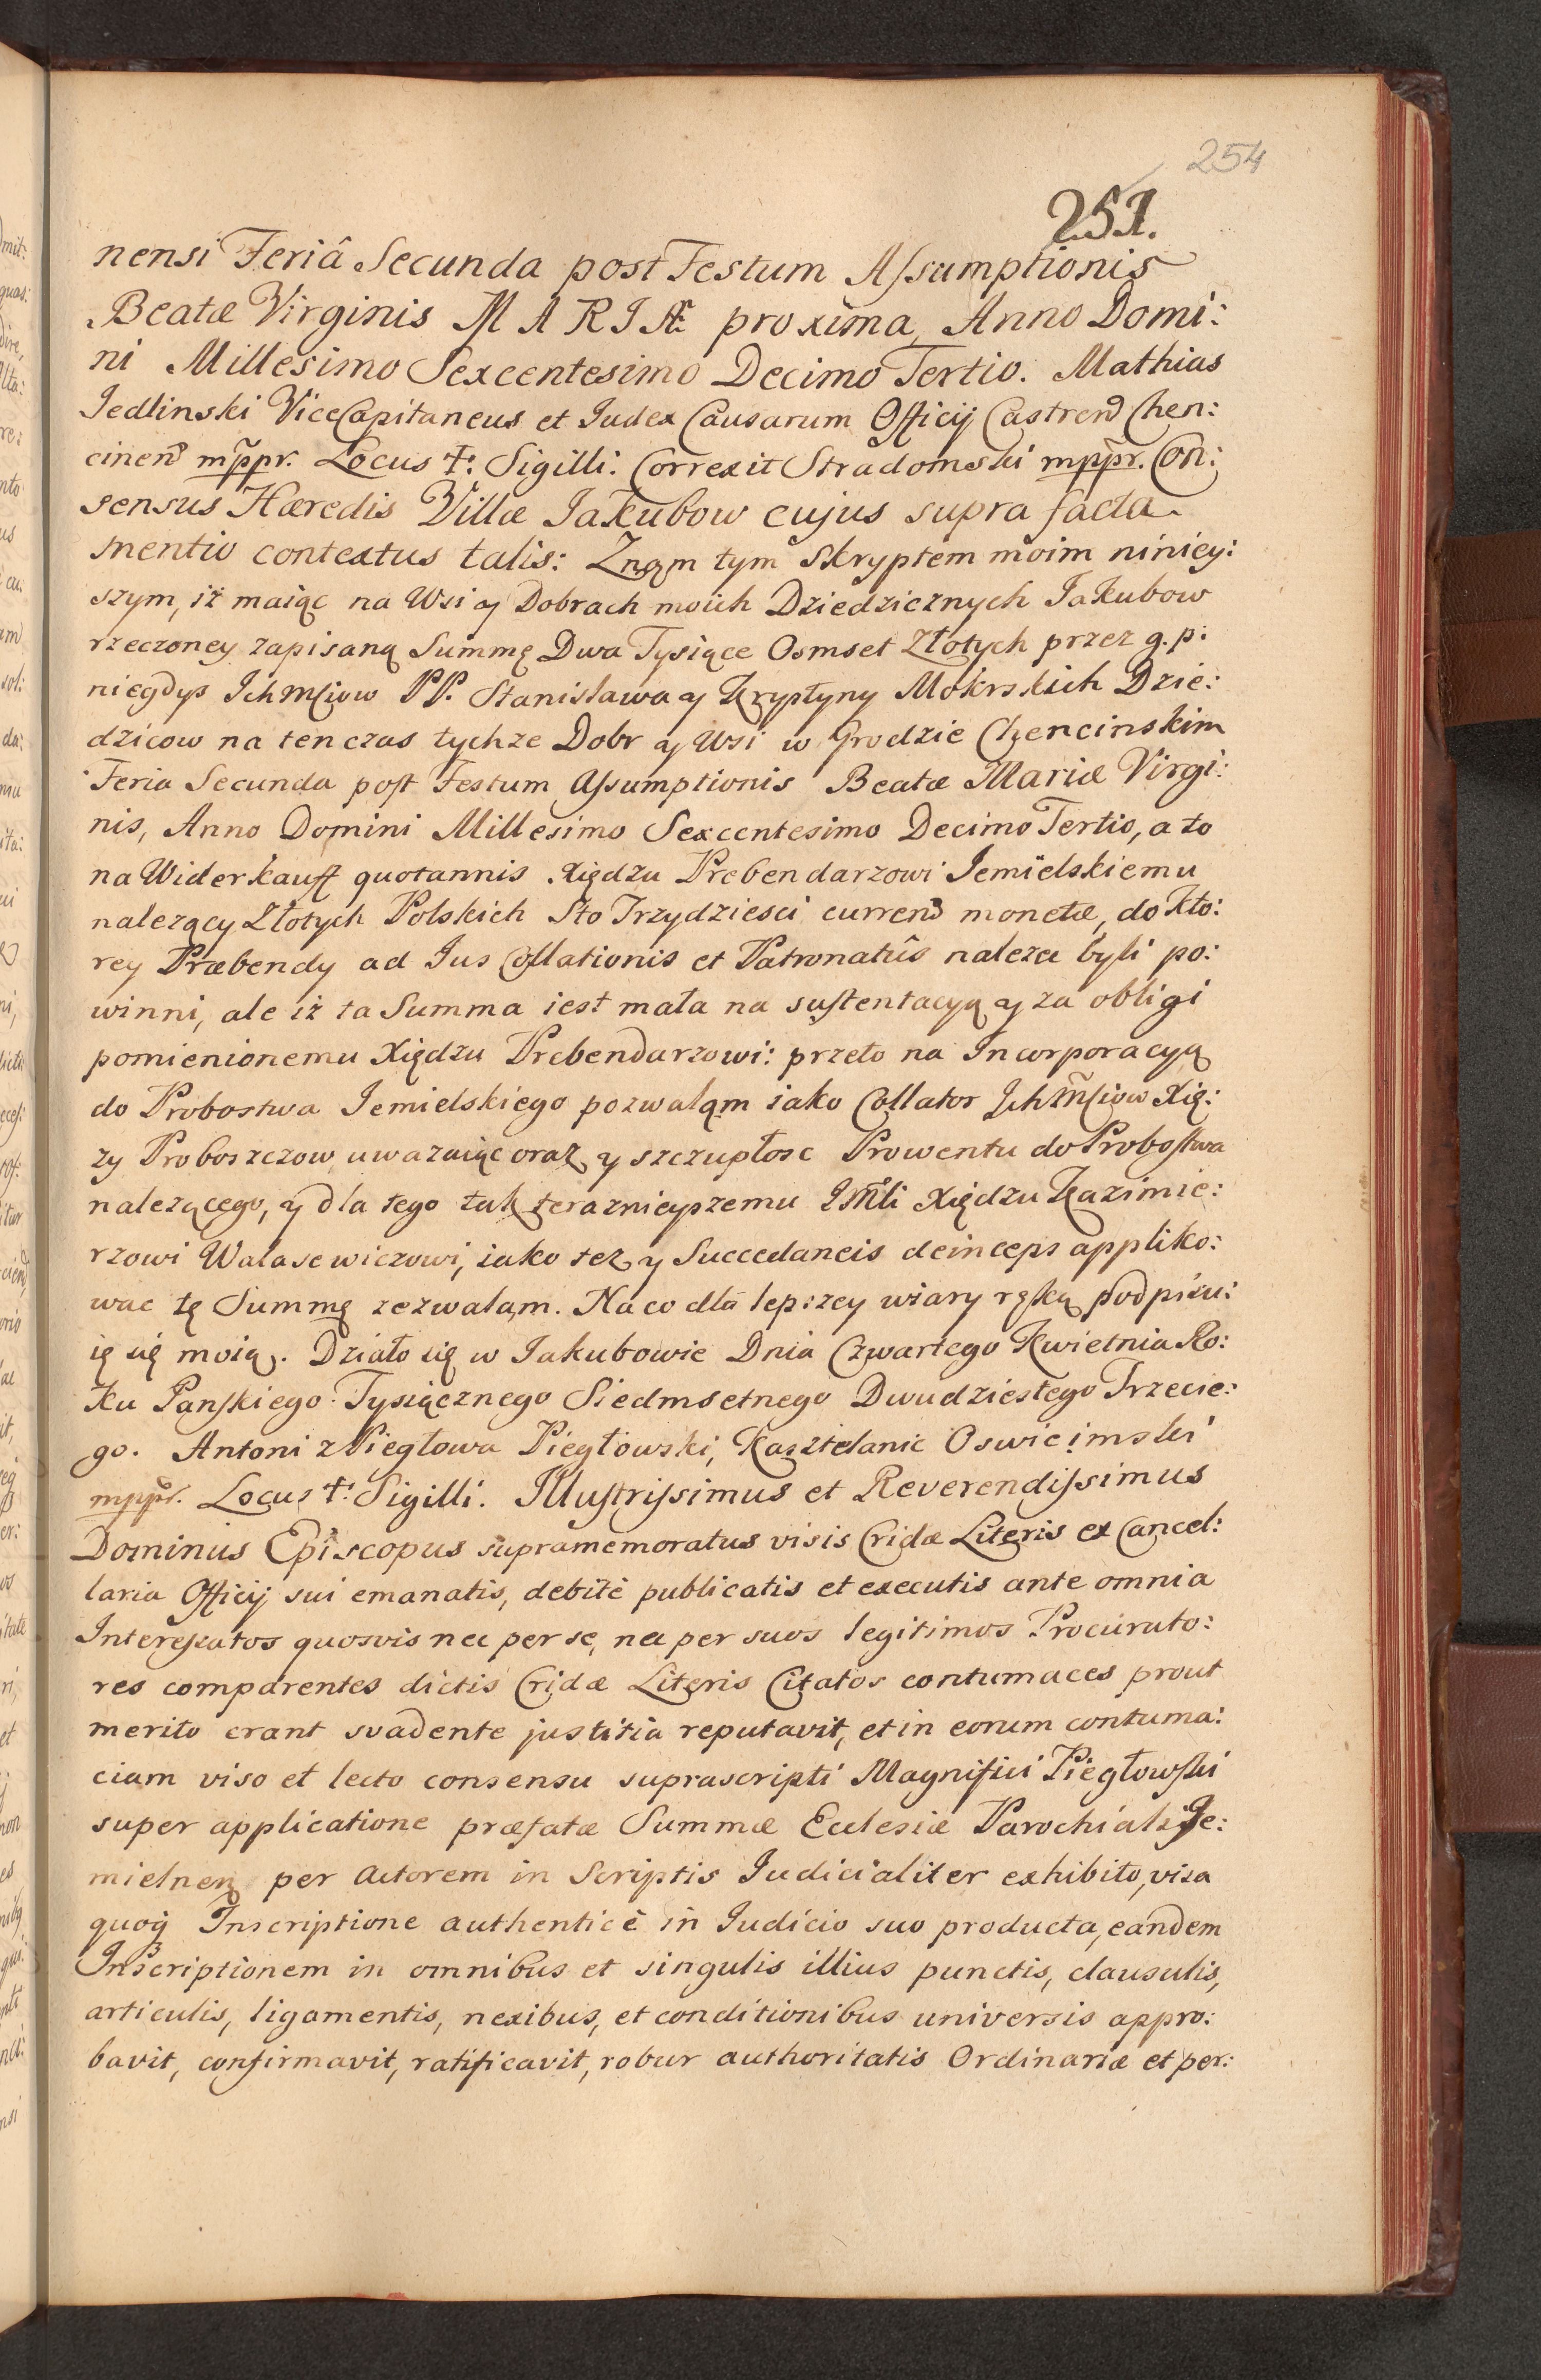 254
251.
nensi Feriâ Secunda post Festum Aſsumptionis
Beatæ Virginis MARIÆ proxima, Anno Domi:
ni Millesimo Sexcentesimo Decimo Tertio. Mathias
Jedlinski ViceCapitaneus et Judex Causarum Officij Castren̄ Chen:
cinen̄ mppr. Locus †: Sigilli. Correxit Stradomski mppr. Con:
sensus Hæredis Villæ Jakubow cujus supra facta
mentio contextus talis: Znąm tym Skryptem moim niniey:
szym, iż maiąc na Wsi ay Dobrach moich Dziedzicznych Jakubow
rzeczoney zapisaną Summę Dwa Tysiące Osmset Złotych przez g. p:
niegdys Ichmſciow PP. Stanisława ay Krystyny Mokrskich Dzie:
dzicow na tenczas tychze Dobr ay Wsi w Grodzie Chencinskim
Feria Secunda poſt Festum Aſsumptionis Beatæ Mariæ Virgi:
nis, Anno Domini Millesimo Sexcentesimo Decimo Tertio, a to
na Widerkauff quotannis Xiędzu Prebendarzowi Jemielskiemu
nalezący Złotych Polskich Sto Trzydziesci curren̄ monetæ, do Kto:
rey Præbendy ad Jus Collationis et Patronatûs nalezec byli po:
winni, ale iż ta Summa iest mała na suſtentacyą ay za obligi
pomienionemu Xiędzu Prebendarzowi: przeto na Incorporacyą
do Probostwa Jemielskiego pozwaląm iako Collator Ichm̃ſciow Xię:
zy Proboszczow, uwazaiąc oraz y szczupłosc Prowentu do Proboſtwa
nalezącego, ay dla tego tak teraznieyszemu Jm̃ći Xiędzu Kazimie:
rzowi Walasewiczowi, iako tez y Succedaneis deinceps appliko:
wac tę Summę zezwaląm. Na co dla lepszey wiary ręką podpisu:
ię się moią. Działo się w Jakubowie Dnia Czwartego Kwietnia Ro:
ku Panſkiego Tysiącznego Siedmsetnego Dwudziestego Trzecie:
go. Antoni z Piegłowa Piegłowski, Kasztelanic Oswiecimski
mppr. Locus †: Sigilli. Illuſtriſsimus et Reverendiſsimus
Dominus Episcopus supramemoratus visis Cridæ Literis ex Cancel:
laria Officij sui emanatis, debitè publicatis et executis ante omnia
Intereſsatos quosvis nec per se, nec per suos legitimos Procurato:
res comparentes dictis Cridæ Literis Citatos contumaces prout
merito erant svadente justitia reputavit, et in eorum contuma:
ciam viso et lecto consensu suprascripti Magnifici Piegłowſki
super applicatione præfatæ Summæ Ecclesiæ Parochiali Je:
mielnen̄ per Actorem in Scriptis Judicialiter exhibito, visa
quoq̄ Inscriptione authenticè in Judicio suo producta, eandem
Inscriptionem in omnibus et singulis illius punctis, clausulis,
articulis, ligamentis, nexibus, et conditionibus universis appro:
bavit, confirmavit, ratificavit, robur authoritatis Ordinariæ et per: